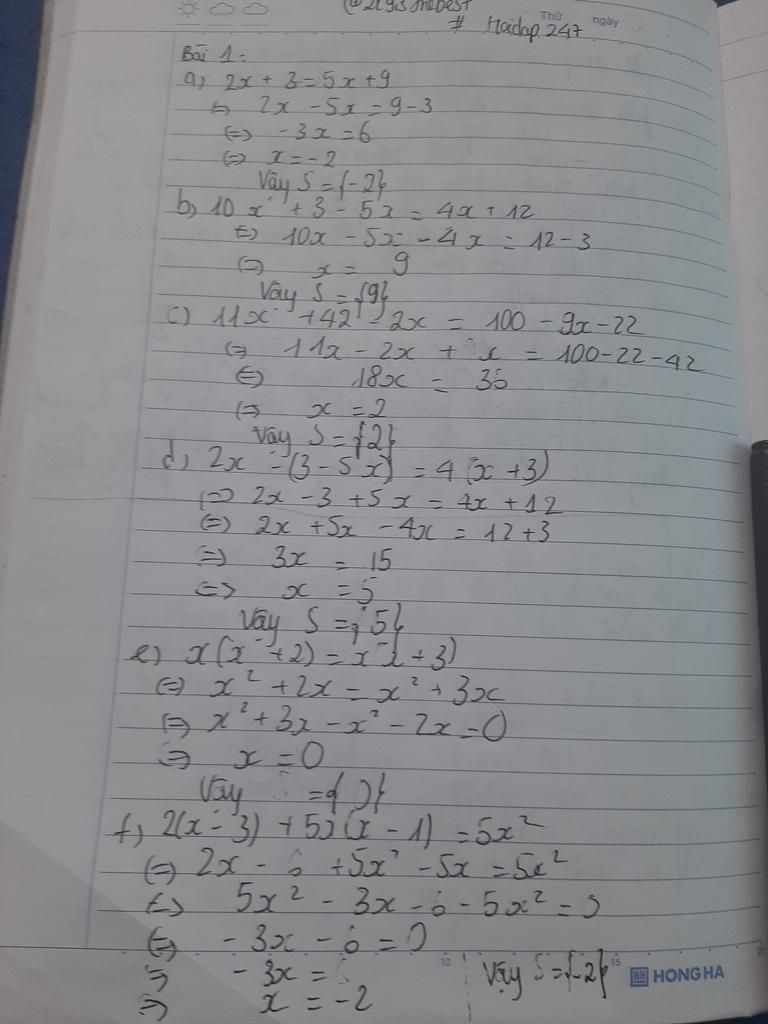 # Hoidap 247
Thứ ngày
Bài 1:
a) 2x + 3 = 5x + 9
⇔ 2x - 5x = 9 - 3
⇔ -3x = 6
⇔ x = -2
Vậy S = {-2}
b) 10x + 3 - 5x = 4x + 12
⇔ 10x - 5x - 4x = 12 - 3
⇔ x = 9
Vậy S = {9}
c) 11x + 42 - 2x = 100 - 9x - 22
⇔ 11x - 2x + x = 100 - 22 - 42
⇔ 18x = 36
⇔ x = 2
Vậy S = {2}
d) 2x - (3 - 5x) = 4(x + 3)
⇔ 2x - 3 + 5x = 4x + 12
⇔ 2x + 5x - 4x = 12 + 3
⇔ 3x = 15
⇔ x = 5
Vậy S = {5}
e) x(x + 2) = x(x + 3)
⇔ x² + 2x = x² + 3x
⇔ x² + 3x - x² - 2x = 0
⇔ x = 0
Vậy S = {0}
f) 2(x - 3) + 5x(x - 1) = 5x²
⇔ 2x - 6 + 5x² - 5x = 5x²
⇔ 5x² - 3x - 6 - 5x² = 0
⇔ -3x - 6 = 0
⇔ -3x =
⇔ x = -2
Vậy S = {-2}
HONG HA